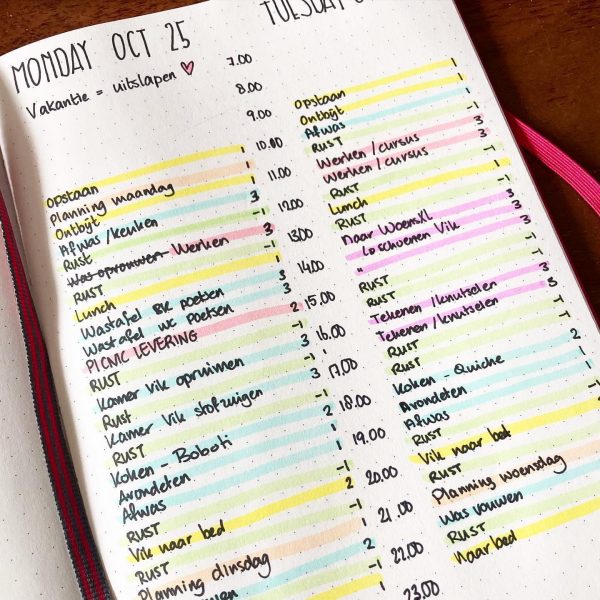 MONDAY OCT 25
Vakantie = uitslapen ♡
opstaan 1
Planning maandag 1
Ontbijt 1
Afwas/keuken 3
Rust -1
Was opvouwen Werken 3
RUST -1
Lunch 1
Wastafel BK poetsen 3
Wastafel wc poetsen 3
PICNIC LEVERING 2
RUST -1
Kamer Vik opruimen 3
Rust -1
Kamer Vik stofzuigen 3
RUST -1
Koken - Boboti 2
Avondeten 1
Afwas 1
RUST -1
Vik naar bed 2
RUST -1
Planning dinsdag 1
7.00
8.00
9.00
10.00
11.00
12.00
13.00
14.00
15.00
16.00
17.00
18.00
19.00
20.00
21.00
22.00
23.00
TUESDAY
opstaan 1
Ontbijt 1
Afwas 1
RUST -1
Werken/cursus 3
Werken/cursus 3
RUST -1
Lunch 1
RUST -1
naar WoensXL 3
↳ schoenen Vik 3
" 3
RUST -1
RUST -1
Tekenen/knutselen 3
Tekenen/knutselen 3
RUST -1
RUST -1
Koken - Quiche 2
Avondeten 1
Afwas
RUST
Vik naar bed
RUST
Planning woensdag
Was vouwen
RUST
naar bed